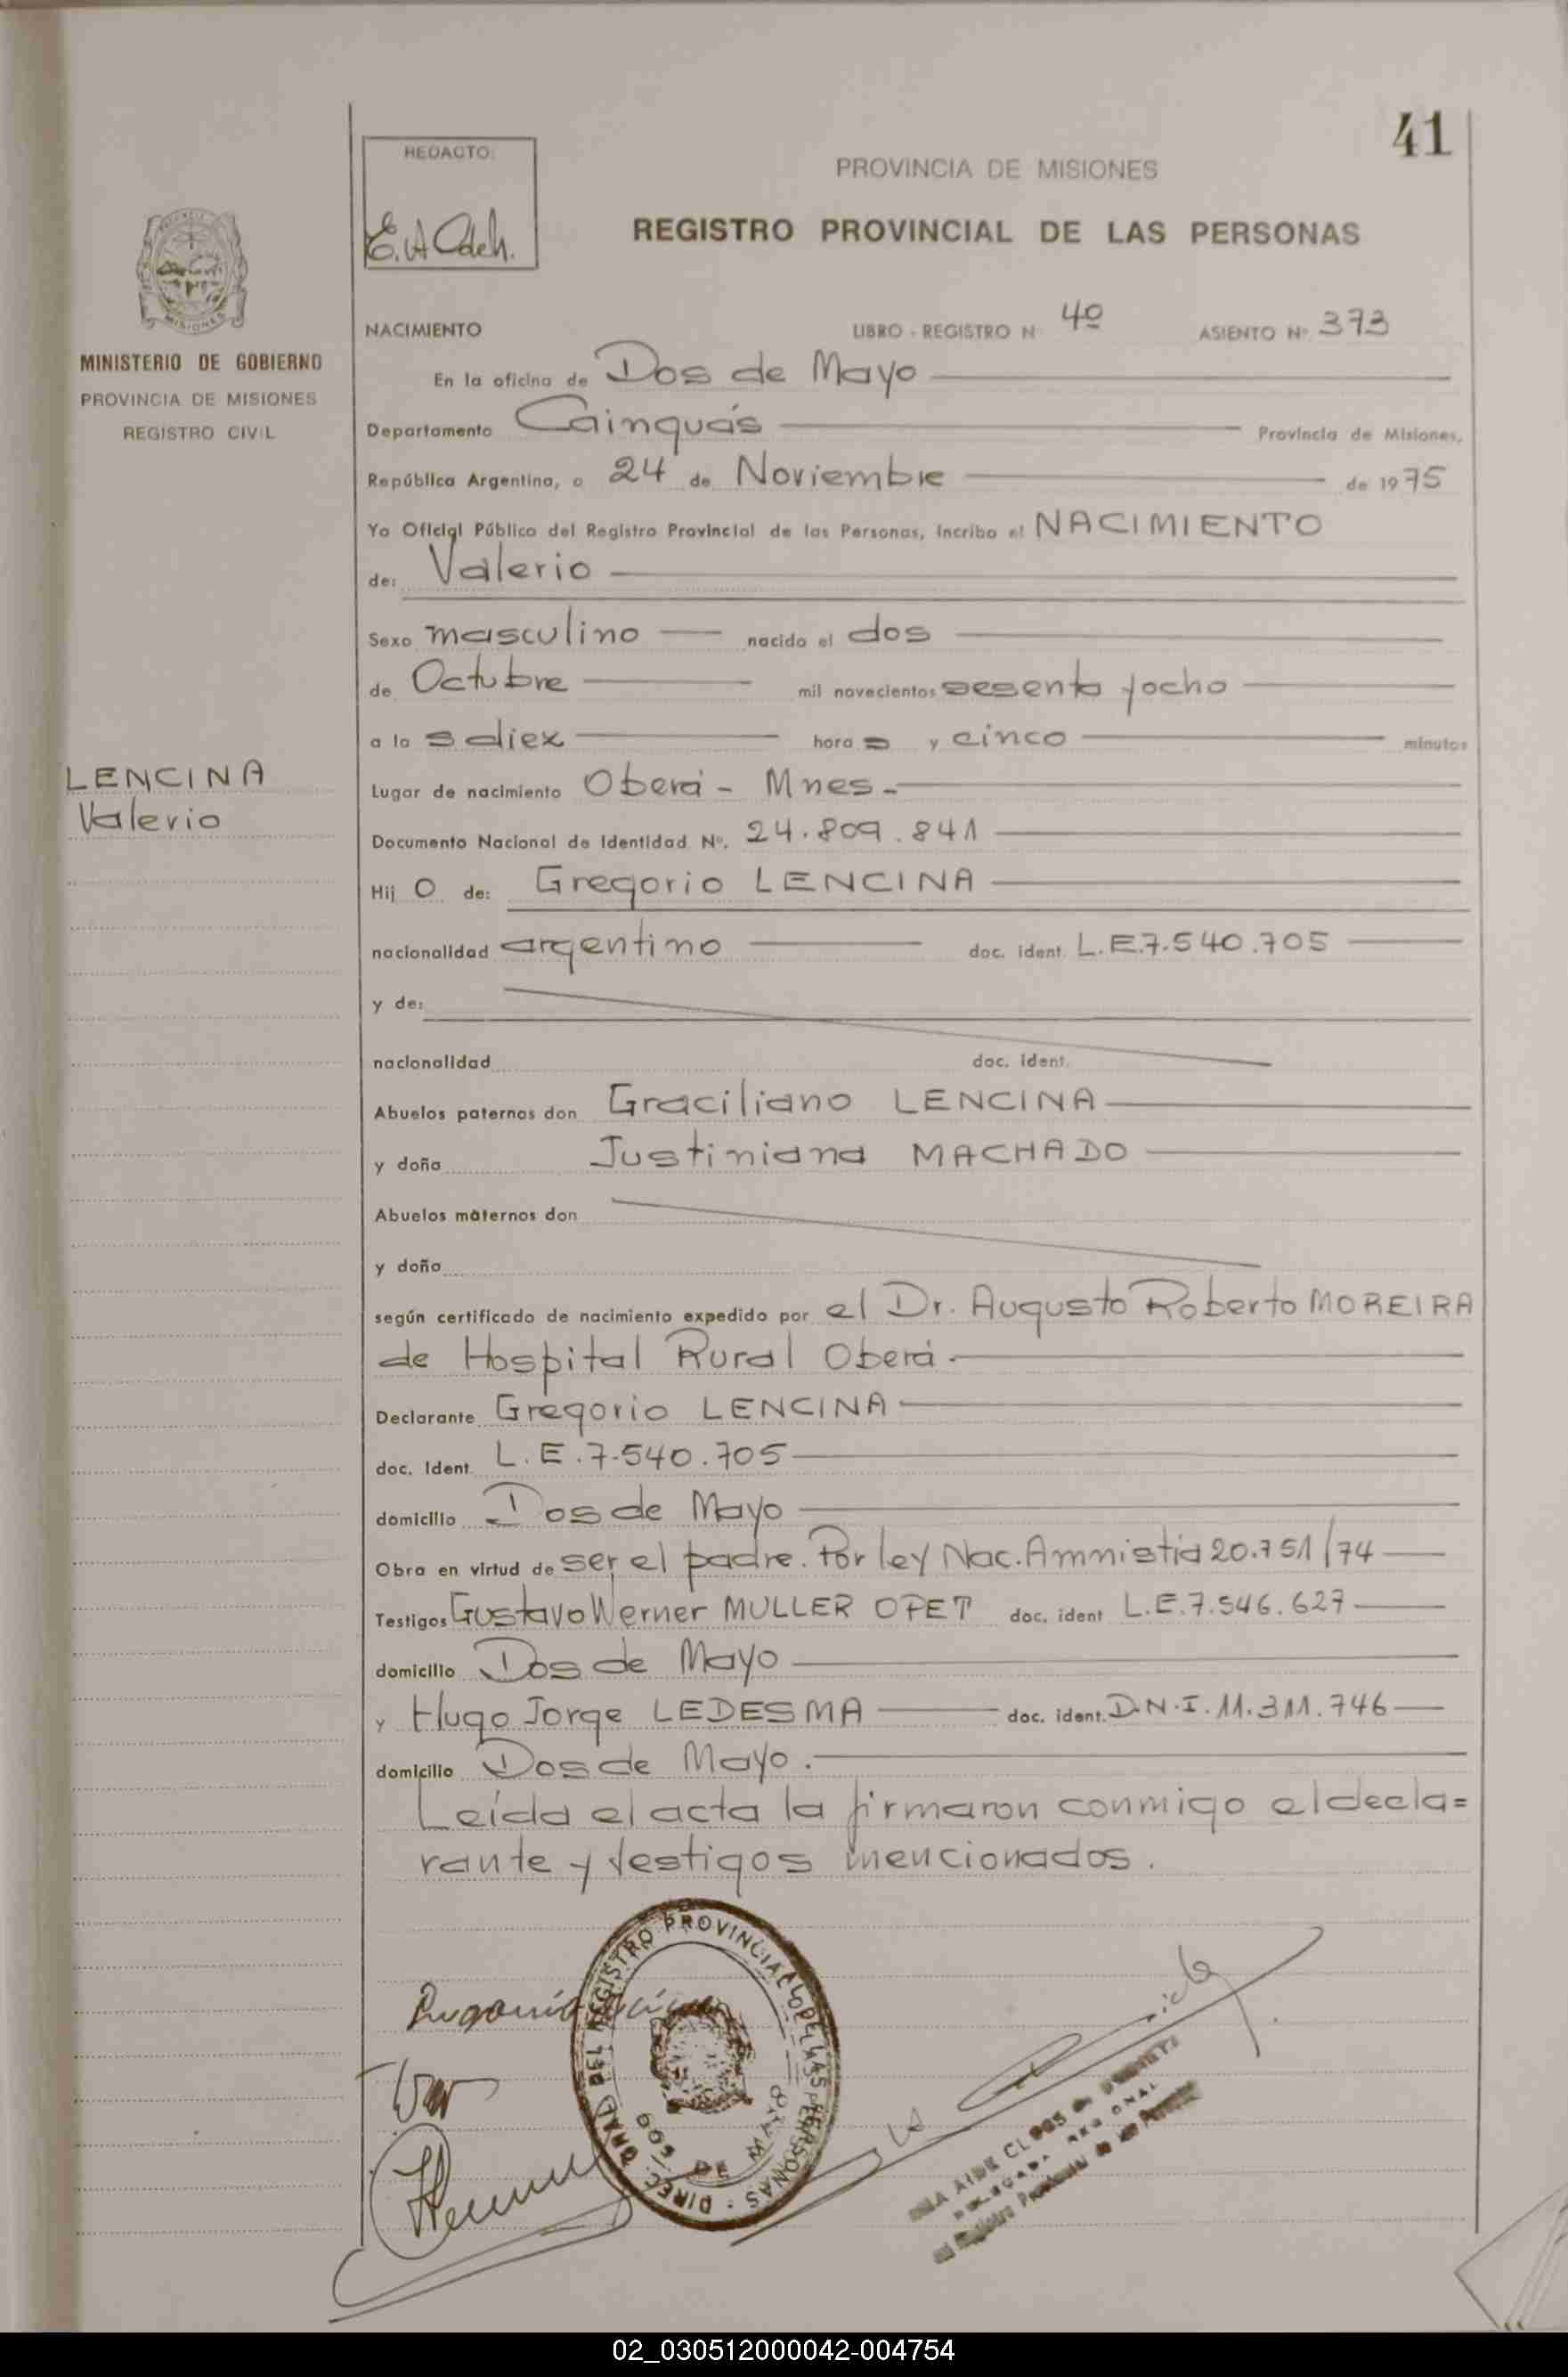 41
REDACTO:
E. A. Cdeh.
PROVINCIA DE MISIONES
REGISTRO PROVINCIAL DE LAS PERSONAS
MISIONES
MINISTERIO DE GOBIERNO
PROVINCIA DE MISIONES
REGISTRO CIVIL
NACIMIENTO LIBRO - REGISTRO Nº 4º ASIENTO Nº 373
En la oficina de Dos de Mayo
Departamento Cainguás Provincia de Misiones,
República Argentina, a 24 de Noviembre de 1975
Yo Oficial Público del Registro Provincial de las Personas, incribo el NACIMIENTO
de: Valerio
Sexo masculino nacido el dos
de Octubre mil novecientos sesenta y ocho
a la s diez hora s y cinco minutos
LENCINA
Valerio
Lugar de nacimiento Oberá - Mnes -
Documento Nacional de Identidad Nº. 24.809.841
Hij O de: Gregorio LENCINA
nacionalidad argentino doc. ident. L.E.7.540.705
y de:
nacionalidad doc. ident.
Abuelos paternos don Graciliano LENCINA
y doña Justiniana MACHADO
Abuelos maternos don
y doña
según certificado de nacimiento expedido por el Dr. Augusto Roberto MOREIRA
de Hospital Rural Oberá.
Declarante Gregorio LENCINA
doc. Ident. L.E.7.540.705
domicilio Dos de Mayo
Obra en virtud de ser el padre. Por ley Nac. Amnistia 20.751/74
Testigos Gustavo Werner MULLER OPET doc. ident L.E.7.546.627
domicilio Dos de Mayo
y Hugo Jorge LEDESMA doc. ident. D.N.I. 11.311.746
domicilio Dos de Mayo.
Leída el acta la firmaron conmigo el decla=
rante y testigos mencionados.
DIREC. GRAL DEL REGISTRO PROVINCIAL DE LAS PERSONAS
DOS DE MAYO
02_030512000042-004754